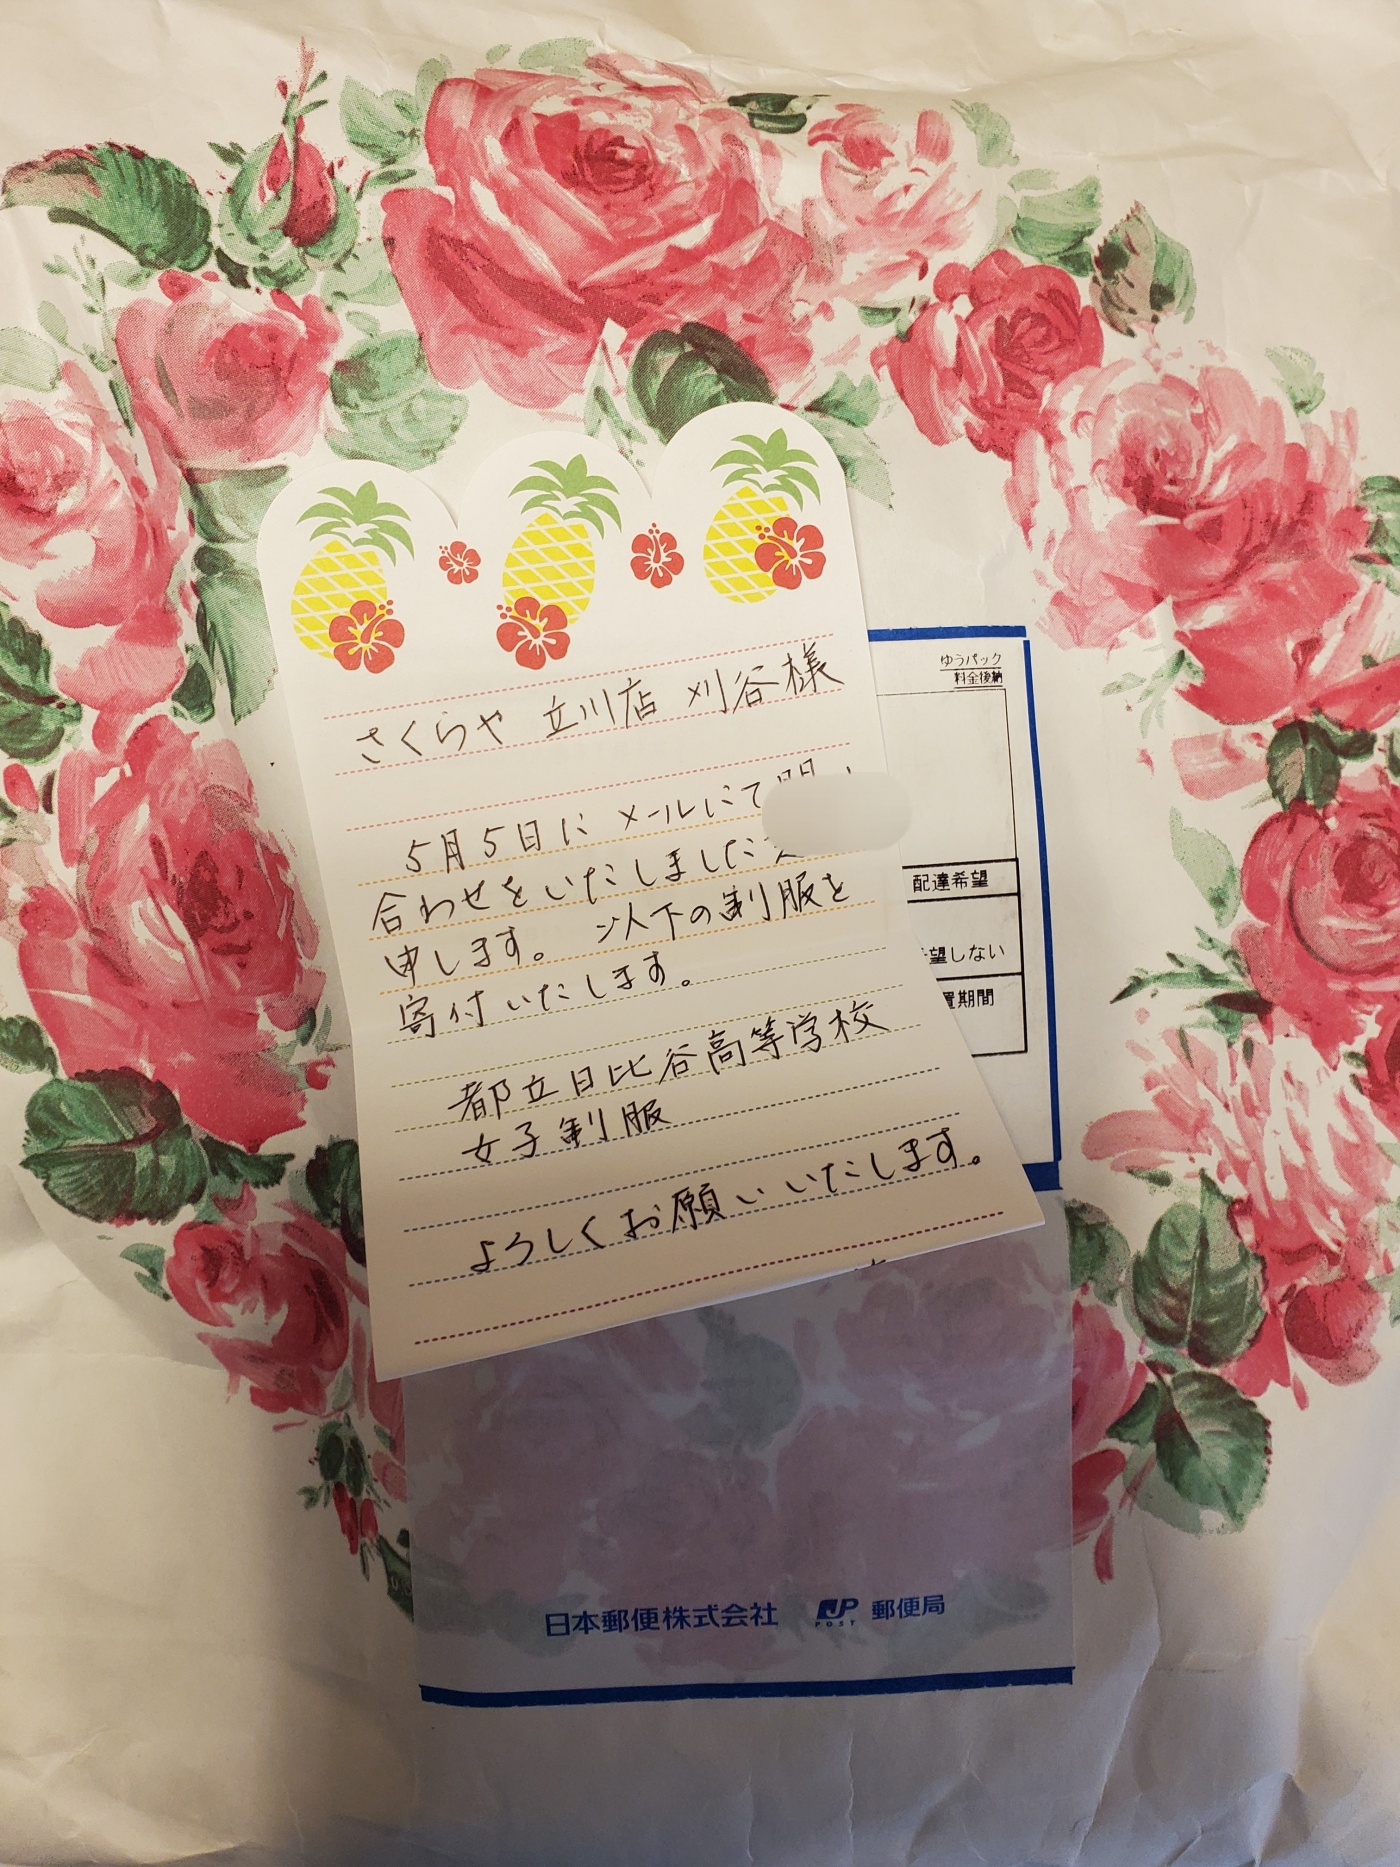 さくらや 立川店 刈谷様
5月5日に メールにて問い
合わせをいたしました
申します。 以下の制服を
寄付いたします。
都立日比谷高等学校
女子制服
よろしくお願いいたします。
ゆうパック
料金後納
配達希望
望しない
置期間
日本郵便株式会社 JP POST 郵便局